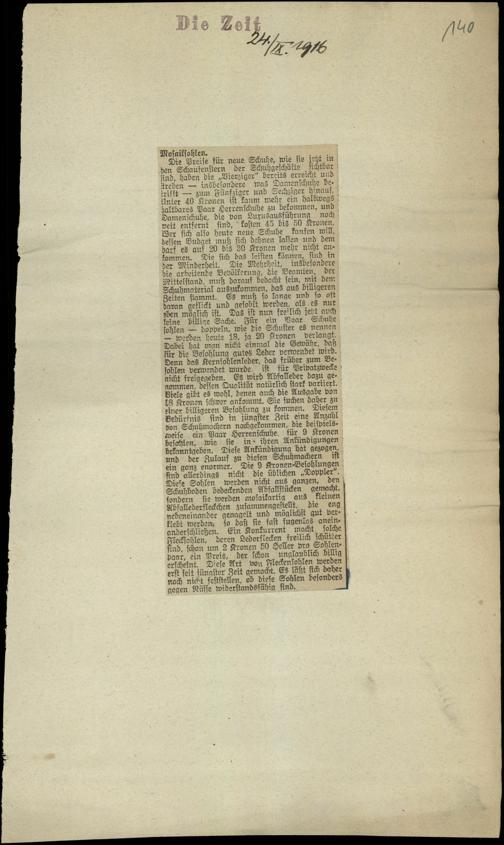 Die Zeit
24./IX. 1916
140
Mosaiksohlen.
Die Preise für neue Schuhe, wie sie jetzt in
den Schaufenstern der Schuhgeschäfte sichtbar
sind, haben die „Vierziger" bereits erreicht und
streben — insbesondere was Damenschuhe be-
trifft — zum Fünfziger und Sechziger hinauf.
Unter 40 Kronen ist kaum mehr ein halbwegs
haltbares Paar Herrenschuhe zu bekommen, und
Damenschuhe, die von Luxusausführung noch
weit entfernt sind, kosten 45 bis 50 Kronen.
Wer sich also heute neue Schuhe kaufen will,
dessen Budget muß sich dehnen lassen und dem
darf es auf 20 bis 30 Kronen mehr nicht an-
kommen. Die sich das leisten können, sind in
der Minderheit. Die Mehrheit, insbesondere
die arbeitende Bevölkerung, die Beamten, der
Mittelstand, muß darauf bedacht sein, mit dem
Schuhmaterial auszukommen, das aus billigeren
Zeiten stammt. Es muß so lange und so oft
daran geflickt und gesohlt werden, als es nur
eben möglich ist. Das ist nun freilich jetzt auch
keine billige Sache. Für ein Paar Schuhe
sohlen — doppeln, wie die Schuster es nennen
— werden heute 18, ja 20 Kronen verlangt.
Dabei hat man nicht einmal die Gewähr, daß
für die Besohlung gutes Leder verwendet wird.
Denn das Kernsohlenleder, das früher zum Be-
sohlen verwendet wurde, ist für Privatzwecke
nicht freigegeben. Es wird Abfalleder dazu ge-
nommen, dessen Qualität natürlich stark variiert.
Viele gibt es wohl, denen auch die Ausgabe von
18 Kronen schwer ankommt. Sie suchen daher zu
einer billigeren Besohlung zu kommen. Diesem
Bedürfnis sind in jüngster Zeit eine Anzahl
von Schuhmachern nachgekommen, die beispiels-
weise ein Paar Herrenschuhe für 9 Kronen
besohlen, wie sie in ihren Ankündigungen
bekanntgeben. Diese Ankündigung hat gezogen,
und der Zulauf zu diesen Schuhmachern ist
ein ganz enormer. Die 9 Kronen-Besohlungen
sind allerdings nicht die üblichen „Doppler".
Diese Sohlen werden nicht aus ganzen, den
Schuhboden bedeckenden Abfallstücken gemacht,
sondern sie werden mosaikartig aus kleinen
Abfallederfleckchen zusammengestellt, die eng
nebeneinander genagelt und möglichst gut ver-
klebt werden, so daß sie fast fugenlos anein-
anderschließen. Ein Konkurrent macht solche
Flecksohlen, deren Lederflecken freilich schütter
sind, schon um 2 Kronen 50 Heller pro Sohlen-
paar, ein Preis, der schon unglaublich billig
erscheint. Diese Art von Fleckensohlen werden
erst seit jüngster Zeit gemacht. Es läßt sich daher
noch nicht feststellen, ob diese Sohlen besonders
gegen Nässe widerstandsfähig sind.